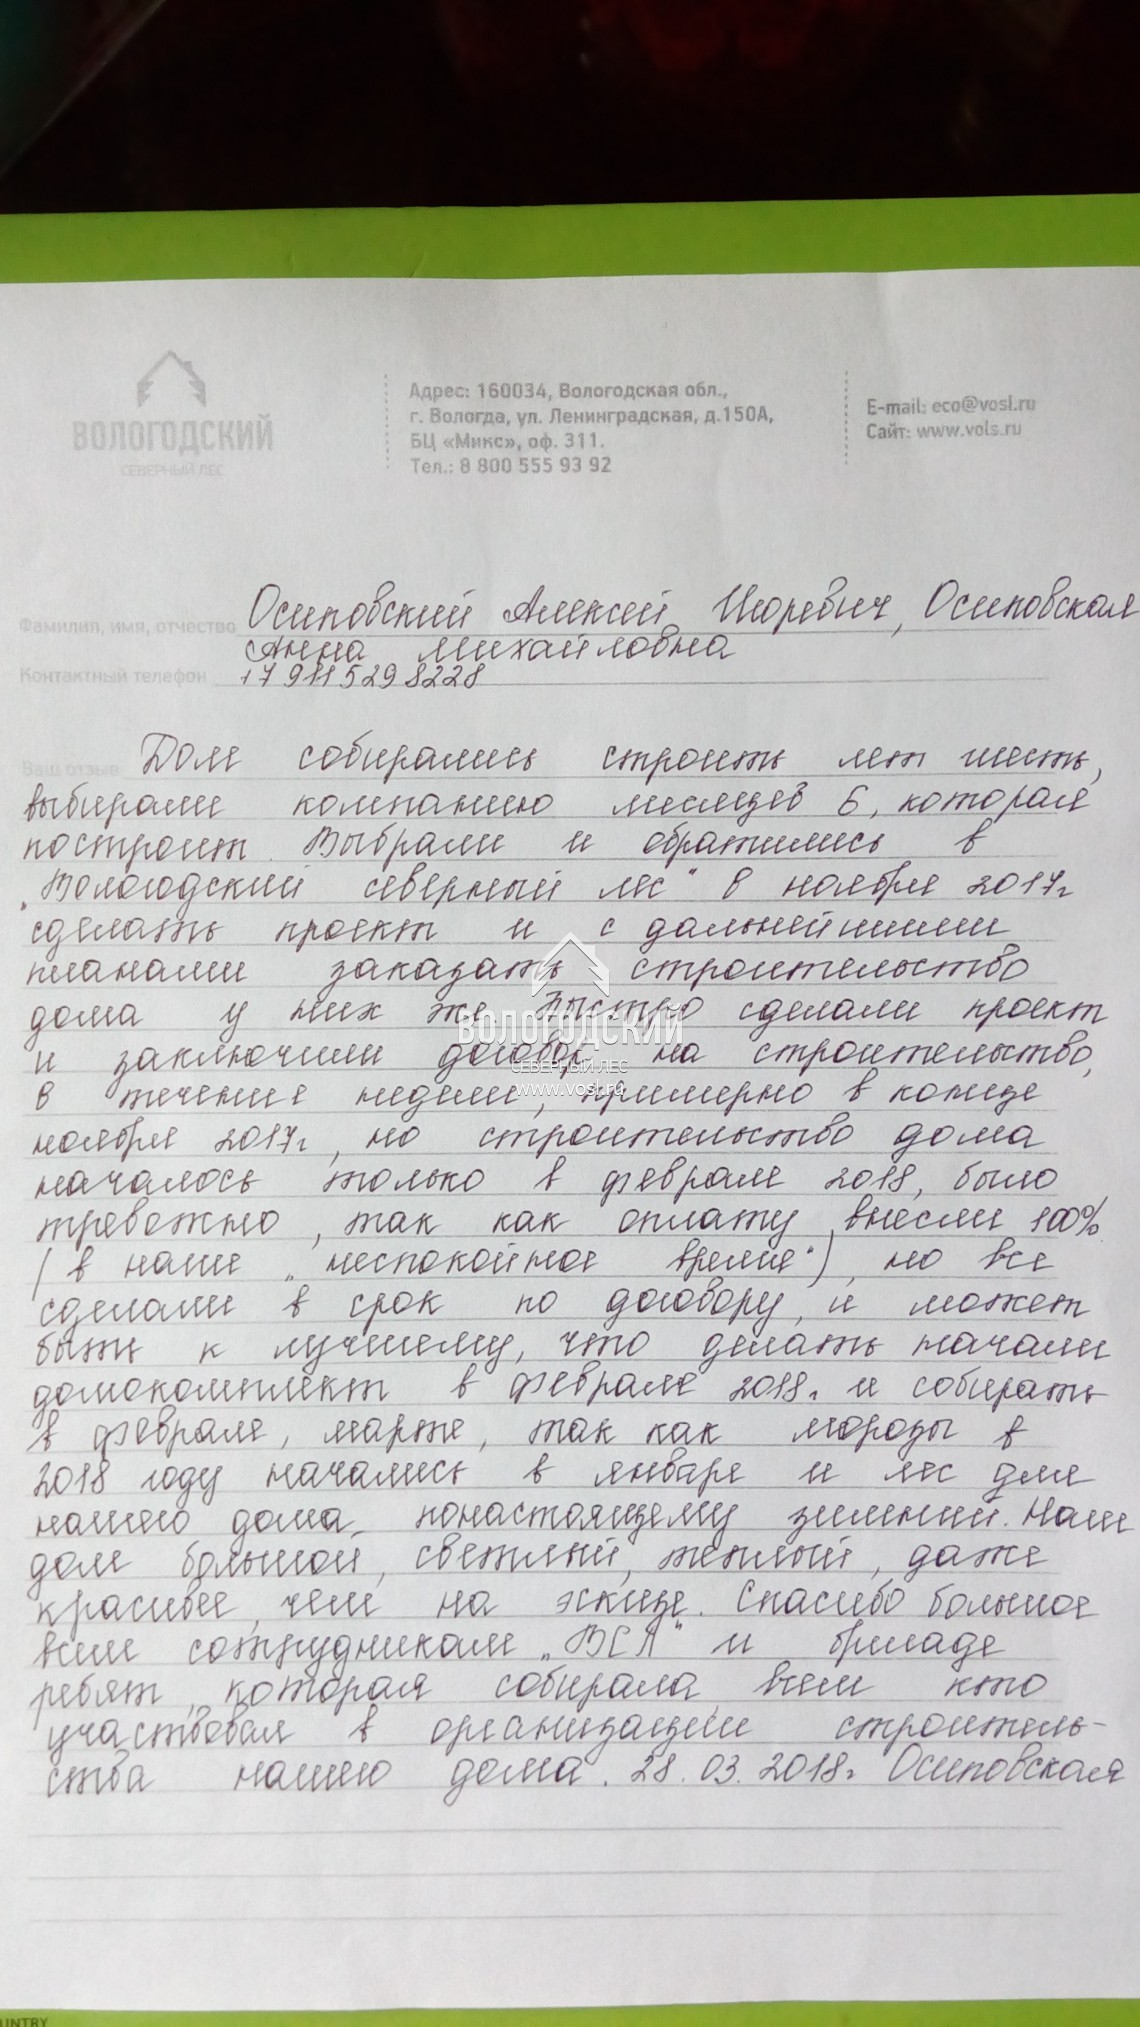 ВОЛОГОДСКИЙ
СЕВЕРНЫЙ ЛЕС
Адрес: 160034, Вологодская обл.,
г. Вологда, ул. Ленинградская, д.150А,
БЦ «Микс», оф. 311.
Тел.: 8 800 555 93 92
E-mail: eco@vosl.ru
Сайт: www.vols.ru
Фамилия, имя, отчество Осиповский Алексей Игоревич, Осиповская
Анна Михайловна
Контактный телефон +79115298228
Ваш отзыв Дом собирались строить лет шесть,
выбирали компанию месяцев 6, которая
построит. Выбрали и обратились в
"Вологодский северный лес" в ноябре 2017г
сделать проект и с дальнейшими
планами заказать строительство
дома у них же. Быстро сделали проект
и заключили договор на строительство,
в течение недели, примерно в конце
ноября 2017г, но строительство дома
началось только в феврале 2018, было
тревожно, так как оплату внесли 100%
(в наше "неспокойное время"), но все
сделали в срок по договору, и может
быть к лучшему, что делать начали
домокомплект в феврале 2018г и собирать
в феврале, марте, так как морозы в
2018 году начались в январе и лес для
нашего дома понастоящему зимний. Наш
дом большой, светлый, теплый, даже
красивее, чем на эскизе. Спасибо большое
всем сотрудникам "ВСЛ" и бригаде
ребят, которая собирала, всем кто
участвовал в организации строитель-
ства нашего дома. 28.03.2018г Осиповская
ВОЛОГОДСКИЙ
СЕВЕРНЫЙ ЛЕС
www.vosl.ru
UNTRY